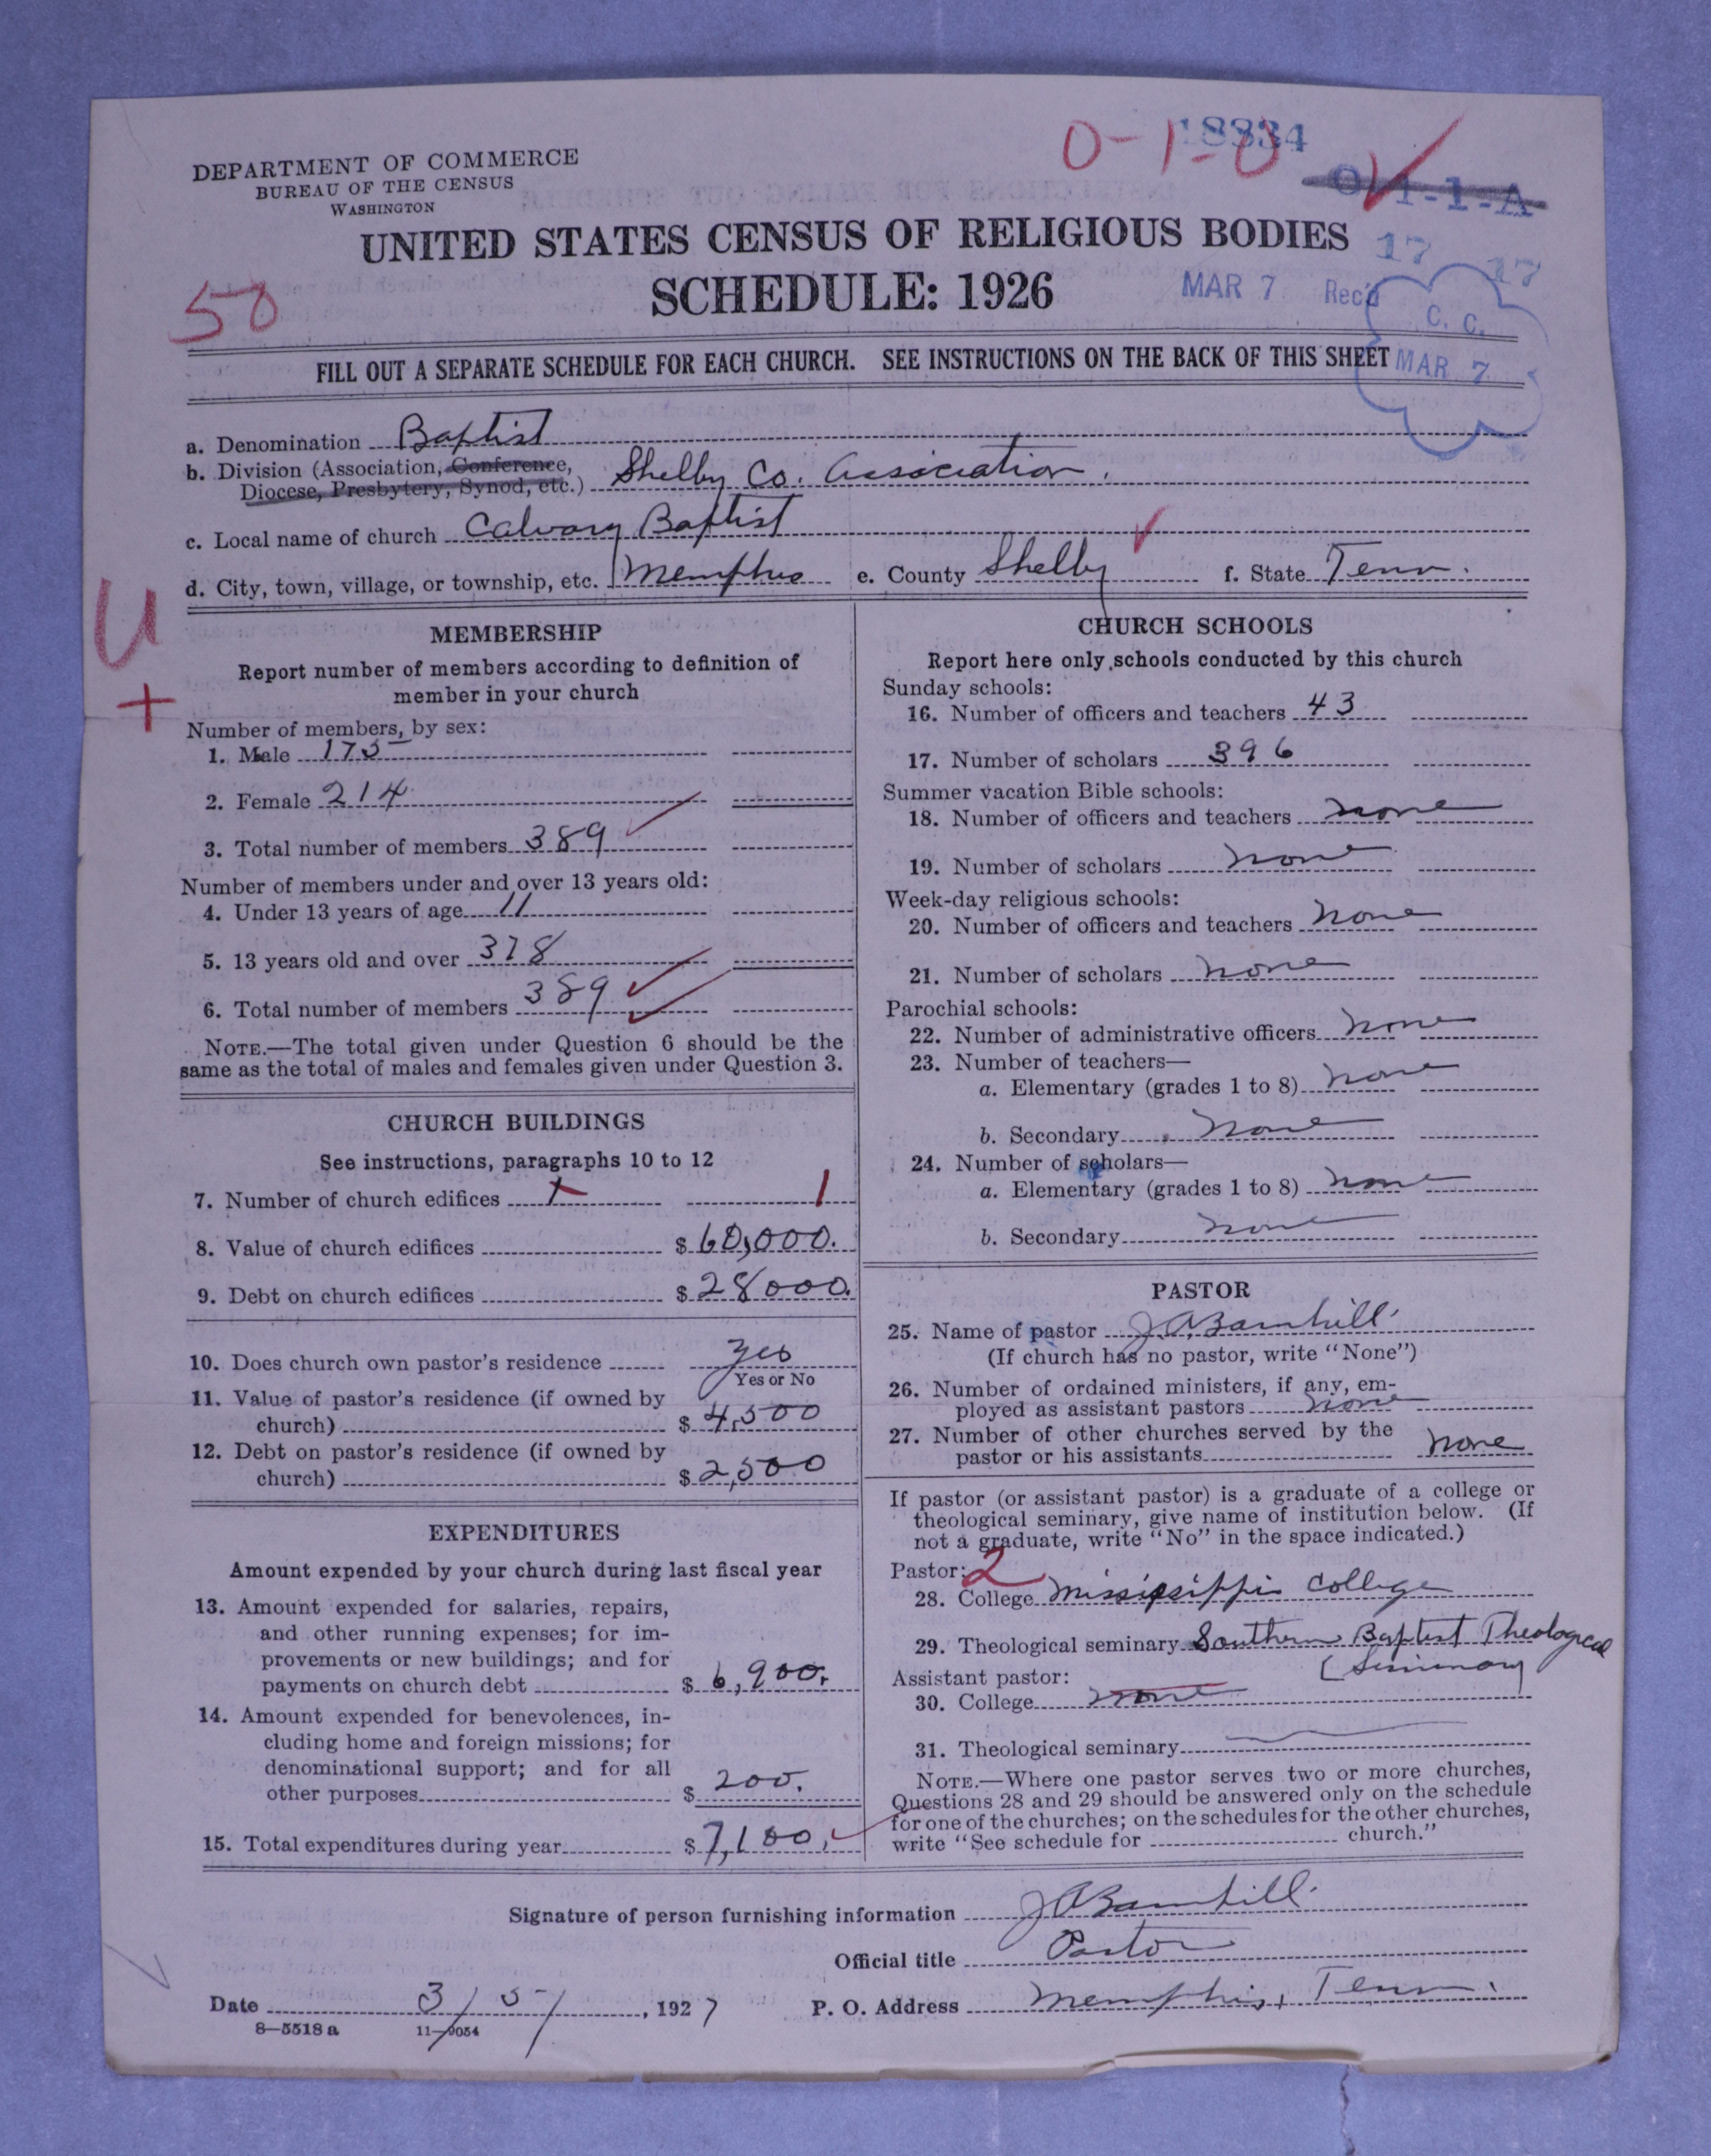 DEPARTMENT OF COMMERCE
BUREAU OF THE CENSUS
WASHINGTON
0-1-0
18334
O-1-1-A
UNITED STATES CENSUS OF RELIGIOUS BODIES
SCHEDULE: 1926
50
MAR 7 Rec'd
17 17
C. C.
MAR 7
FILL OUT A SEPARATE SCHEDULE FOR EACH CHURCH. SEE INSTRUCTIONS ON THE BACK OF THIS SHEET
a. Denomination Baptist
b. Division (Association, Conference,
Diocese, Presbytery, Synod, etc.) Shelby Co. Association.
c. Local name of church Calvary Baptist
d. City, town, village, or township, etc. Memphis e. County Shelby f. State Tenn.
U
+
MEMBERSHIP
Report number of members according to definition of
member in your church
Number of members, by sex:
1. Male 175
2. Female 214
3. Total number of members 389
Number of members under and over 13 years old:
4. Under 13 years of age 11
5. 13 years old and over 378
6. Total number of members 389
NOTE.—The total given under Question 6 should be the
same as the total of males and females given under Question 3.
CHURCH BUILDINGS
See instructions, paragraphs 10 to 12
7. Number of church edifices 1
8. Value of church edifices $ 60,000.
9. Debt on church edifices $ 28000.
10. Does church own pastor's residence yes
Yes or No
11. Value of pastor's residence (if owned by
church) $ 4,500
12. Debt on pastor's residence (if owned by
church) $ 2,500
EXPENDITURES
Amount expended by your church during last fiscal year
13. Amount expended for salaries, repairs,
and other running expenses; for im-
provements or new buildings; and for
payments on church debt $ 6,900.
14. Amount expended for benevolences, in-
cluding home and foreign missions; for
denominational support; and for all
other purposes $ 200.
15. Total expenditures during year $ 7,100.
CHURCH SCHOOLS
Report here only schools conducted by this church
Sunday schools:
16. Number of officers and teachers 43
17. Number of scholars 396
Summer vacation Bible schools:
18. Number of officers and teachers none
19. Number of scholars none
Week-day religious schools:
20. Number of officers and teachers none
21. Number of scholars none
Parochial schools:
22. Number of administrative officers none
23. Number of teachers—
a. Elementary (grades 1 to 8) none
b. Secondary none
24. Number of scholars—
a. Elementary (grades 1 to 8) none
b. Secondary none
PASTOR
25. Name of pastor J A Barnhill
(If church has no pastor, write "None")
26. Number of ordained ministers, if any, em-
ployed as assistant pastors none
27. Number of other churches served by the
pastor or his assistants none
If pastor (or assistant pastor) is a graduate of a college or
theological seminary, give name of institution below. (If
not a graduate, write "No" in the space indicated.)
Pastor: 2
28. College Mississippi College
29. Theological seminary Southern Baptist Theological
Seminary
Assistant pastor:
30. College none
31. Theological seminary
NOTE.—Where one pastor serves two or more churches,
Questions 28 and 29 should be answered only on the schedule
for one of the churches; on the schedules for the other churches,
write "See schedule for church."
Signature of person furnishing information J A Barnhill
Official title Pastor
Date 3/5/, 1927 P. O. Address Memphis, Tenn.
8—5518 a 11—9054